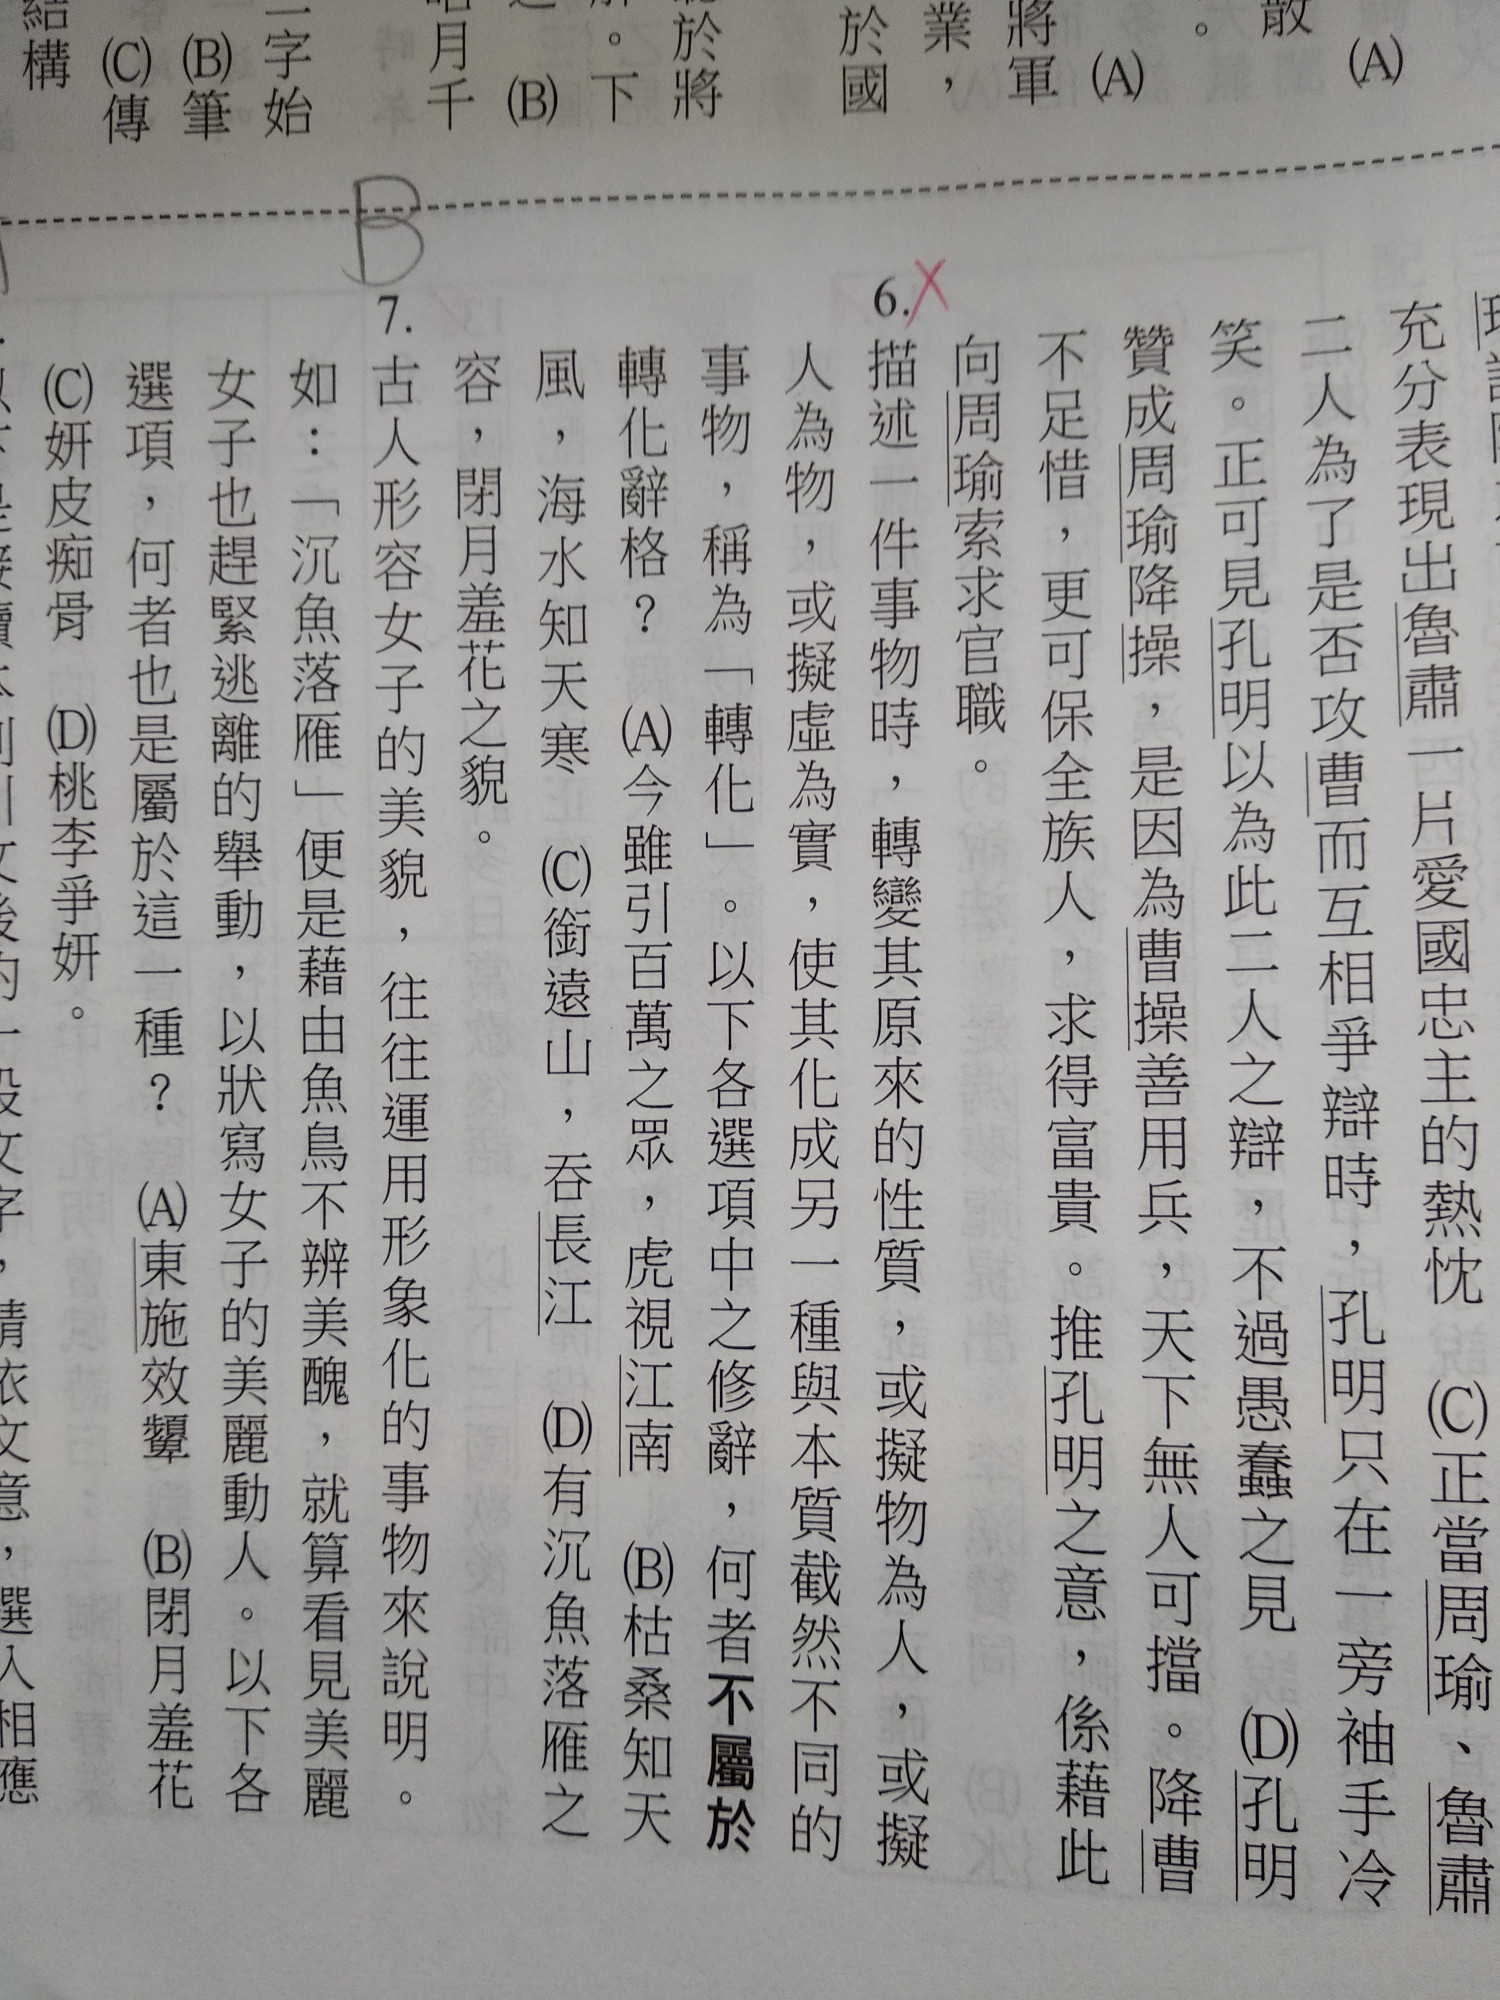 (A)
散
。
(A)
將軍
業，
於國
於將
。下
(B)
月千
字始
(B)筆
(C)傳
結構
充分表現出魯肅一片愛國忠主的熱忱　(C)正當周瑜、魯肅
二人為了是否攻曹而互相爭辯時，孔明只在一旁袖手冷
笑。正可見孔明以為此二人之辯，不過愚蠢之見　(D)孔明
贊成周瑜降操，是因為曹操善用兵，天下無人可擋。降曹
不足惜，更可保全族人，求得富貴。推孔明之意，係藉此
向周瑜索求官職。
6.描述一件事物時，轉變其原來的性質，或擬物為人，或擬
人為物，或擬虛為實，使其化成另一種與本質截然不同的
事物，稱為「轉化」。以下各選項中之修辭，何者不屬於
轉化辭格？　(A)今雖引百萬之眾，虎視江南　(B)枯桑知天
風，海水知天寒　(C)銜遠山，吞長江　(D)有沉魚落雁之
容，閉月羞花之貌。
B
7.古人形容女子的美貌，往往運用形象化的事物來說明。
如：「沉魚落雁」便是藉由魚鳥不辨美醜，就算看見美麗
女子也趕緊逃離的舉動，以狀寫女子的美麗動人。以下各
選項，何者也是屬於這一種？　(A)東施效顰　(B)閉月羞花
(C)妍皮痴骨　(D)桃李爭妍。
後的一段文字，請依文意，選入相應